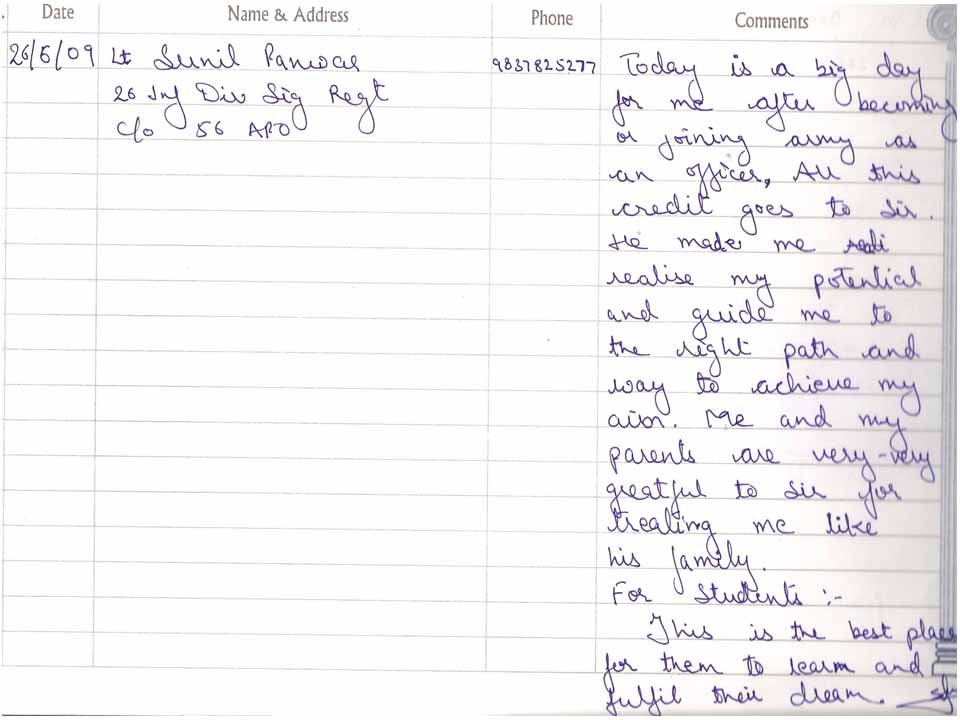 Date Name & Address Phone Comments
26/6/09 Lt Sunil Panwar 9837825277 Today is a big day
26 Inf Div Sig Regt for me after becoming
c/o 56 APO or joining army as
an officer, All this
credit goes to Sir.
He made me reali
realise my potential
and guide me to
the right path and
way to achieve my
aim. Me and my
parents are very-very
greatful to Sir for
treating me like
his family.
For Students :-
This is the best place
for them to learn and
fulfil their dream.